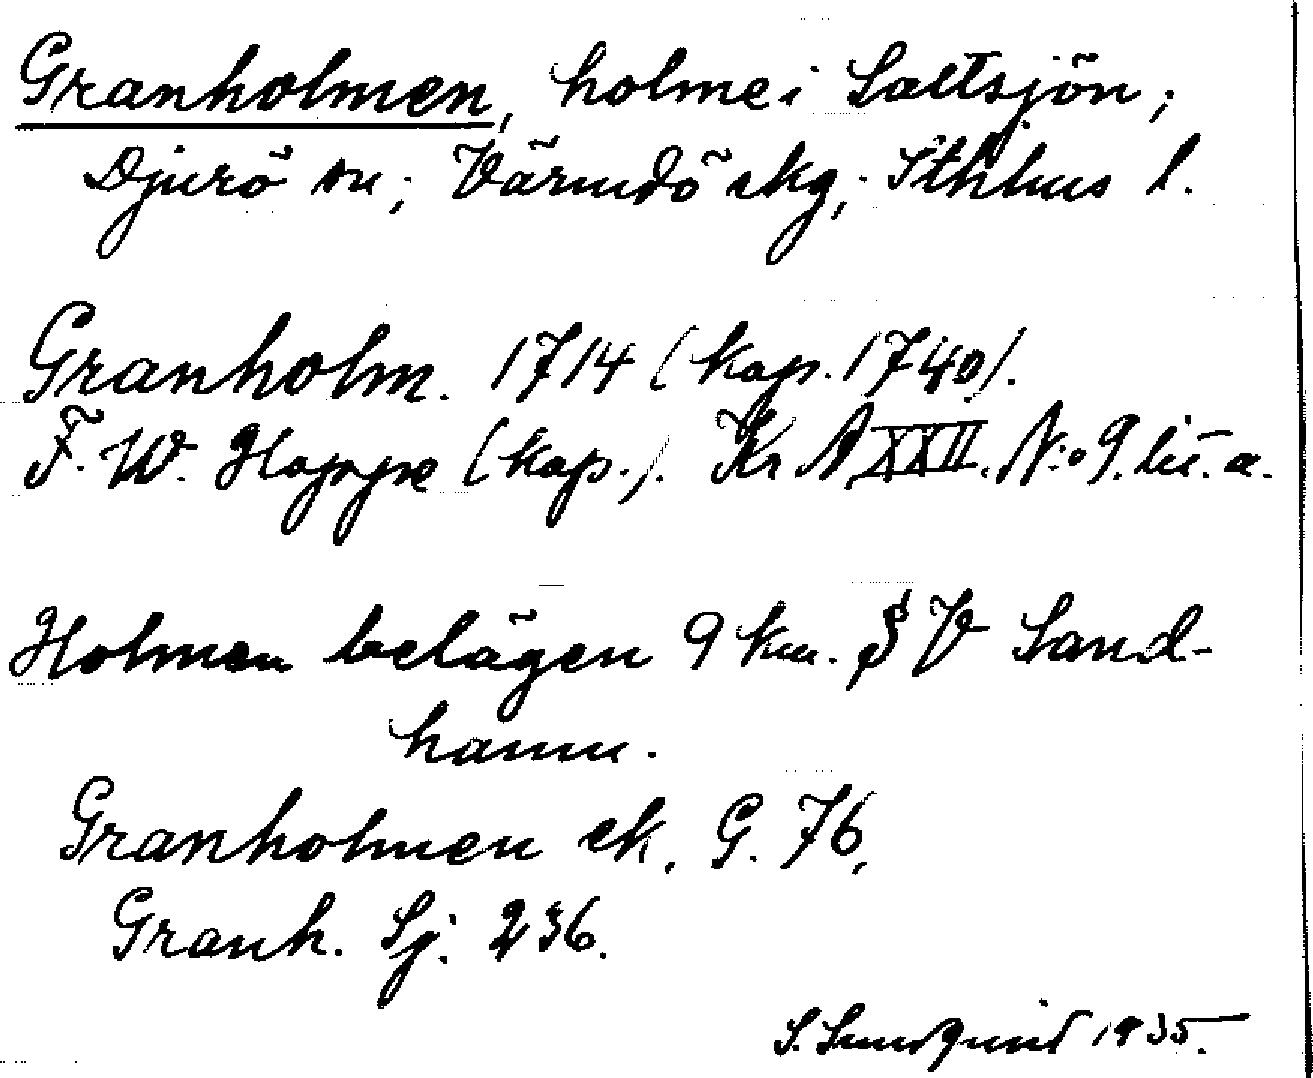 Granholmen, holme i Saltsjön;
Djurö sn; Värmdö skg; Sthlms l.
Granholm. 1714 (kop. 1740).
F. W. Hoppe (kop.). Kr A XXII. N:o 9. lit. a.
Holmen belägen 9 km. SV Sand-
hamn.
Granholmen ek. G. 76,
Granh. Sj. 236.
S. Sundquist 1935.